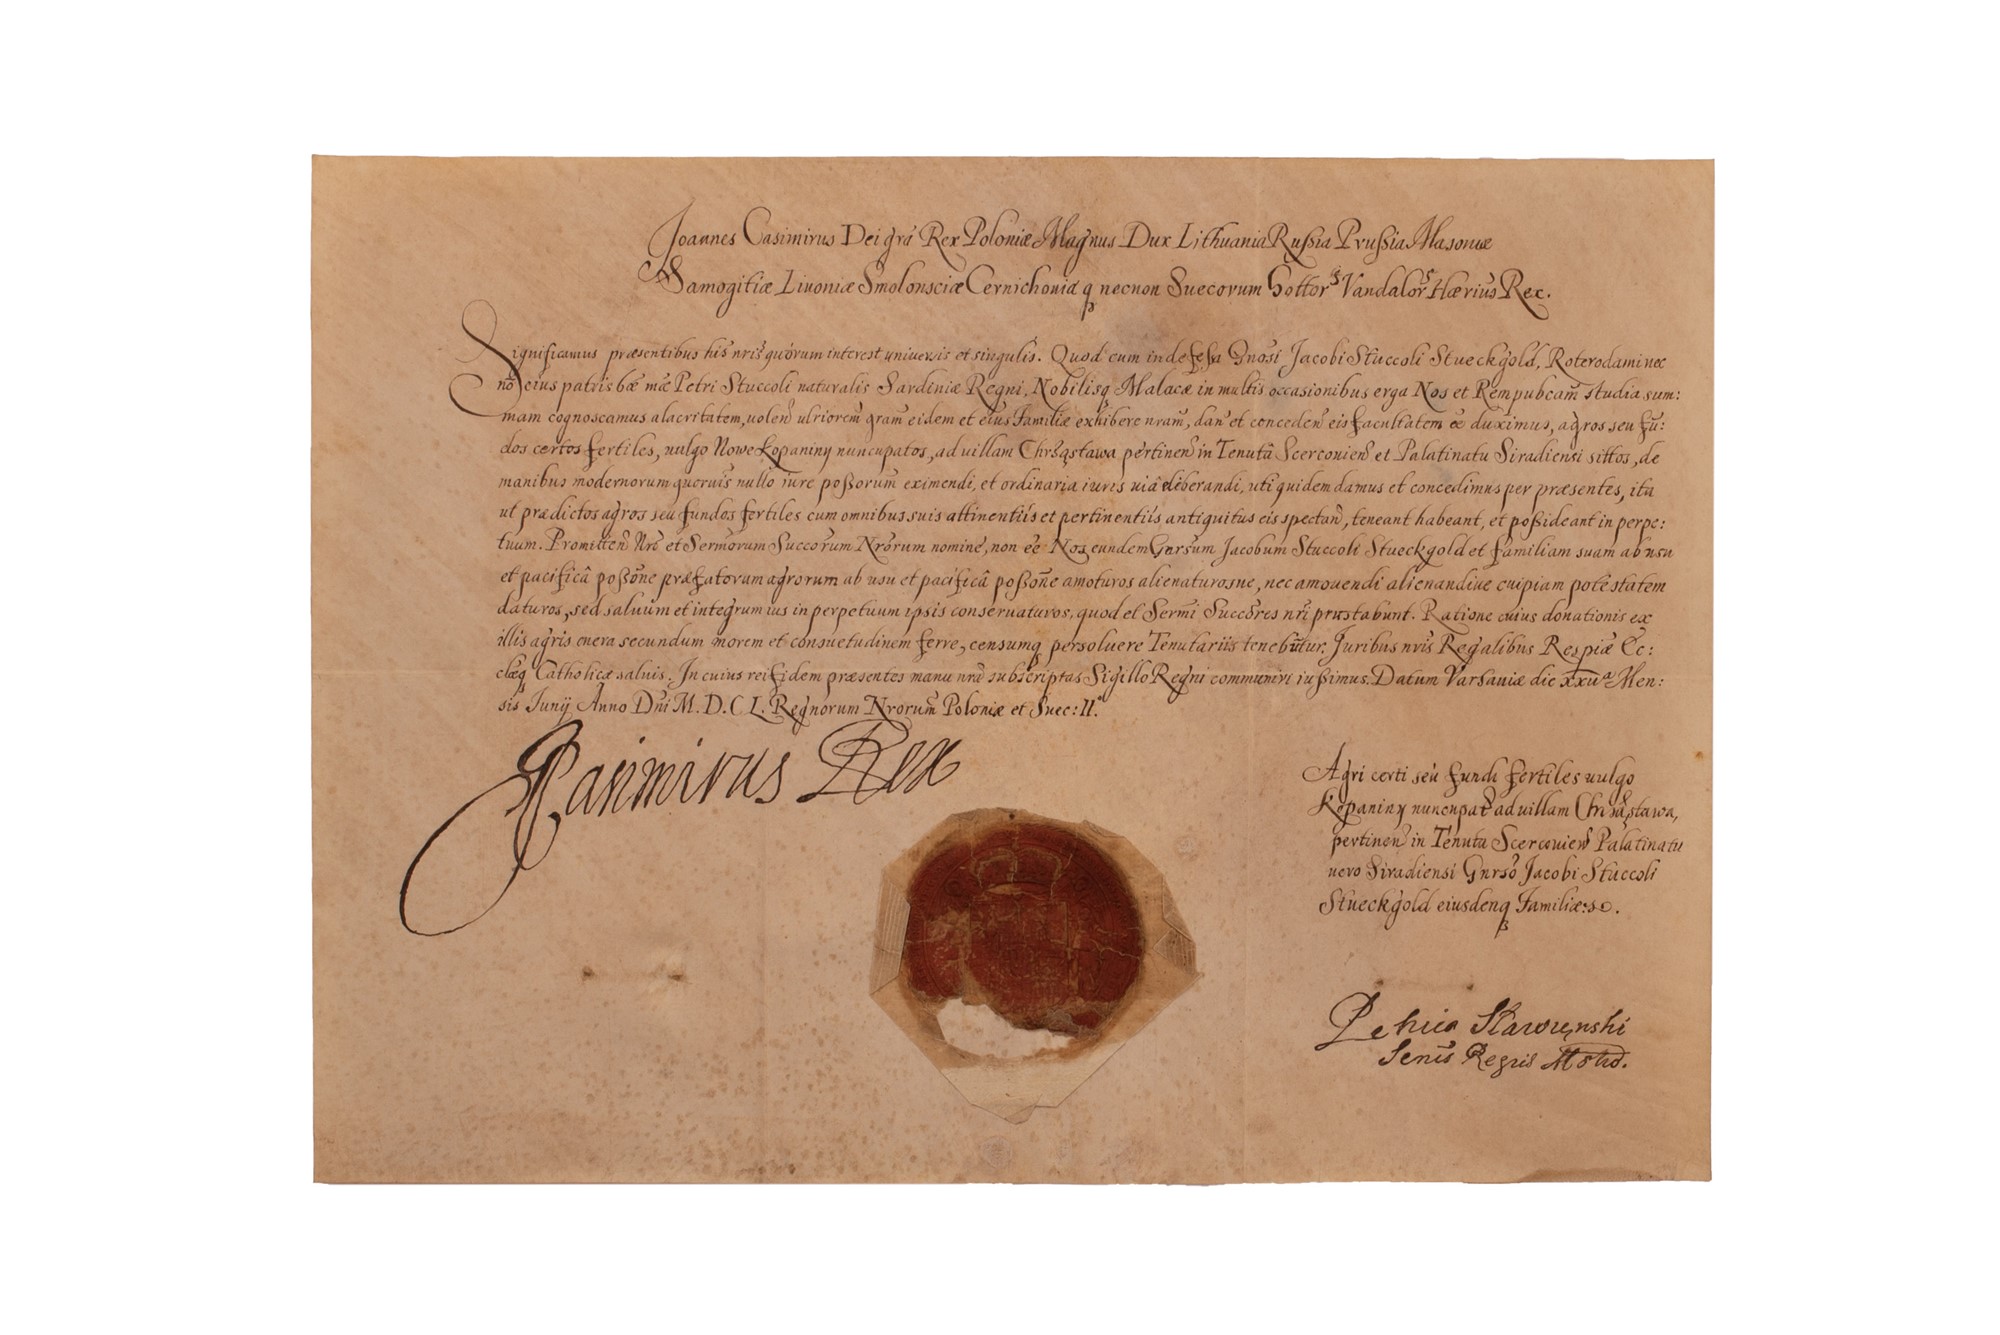 Joannes Casimirus Dei grã Rex Poloniæ Magnus Dux Lithuaniæ Russiæ Prussiæ Masoviæ
Samogitiæ Livoniæ Smolonsciæ Cernichoniæ q necnon Suecorum Gottor Vandalor Hærius Rex.
Significamus præsentibus his nris quorum interest universis et singulis. Quod cum indefessa Gnosi Jacobi Stuccoli Stueckgold, Roterodami nec
nõ eius patris Petri Stuccoli naturalis Sardiniæ Regni, Nobilisq Malacæ in multis occasionibus erga Nos et Rempubcam studia sum:
mam cognoscamus alacritatem, uolen ulriorem gram eidem et eius Familiæ exhibere nram, dan et conceden eis facultatem duximus, agros seu fu:
dos certos fertiles, vulgo Nowe Kopaniny nuncupatos, ad uillam Chrząstawa pertinen in Tenuta Scerconien et Palatinatu Siradiensi sittos, de
manibus modernorum quoruis nullo iure poßorum eximendi, et ordinaria iuris uiâ deliberandi, uti quidem damus et concedimus per præsentes, ita
ut prædictos agros seu fundos fertiles cum omnibus suis attinentiis et pertinentiis antiquitus eis spectan, teneant habeant, et poßideant in perpe:
tuum. Promitten Nro et Sermorum Succorum Nrorum nomine, non ee Nos eundem Gnrsum Jacobum Stuccoli Stueckgold et familiam suam ab usu
et pacificâ poßone præfatorum agrorum ab usu et pacificâ poßone amoturos alienaturosue, nec amouendi alienandiue cuipiam potestatem
daturos, sed saluum et integrum ius in perpetuum ipsis conseruaturos, quod et Sermi Succores nri præstabunt. Ratione cuius donationis ex
illis agris onera secundum morem et consuetudinem ferre, censumq persoluere Tenutariis tenebuntur. Juribus nris Regalibus Respiæ Ec:
clæq Catholicæ saluis. In cuius rei fidem præsentes manu nra subscriptas Sigillo Regni communiri iußimus. Datum Varsauiæ die xxii Men:
sis Junij Anno Dni M.D.C L. Regnorum Nrorum Poloniæ et Suec: II.
Casimirus Rex
Agri certi seu fundi fertiles uulgo
Kopaniny nuncupat ad uillam Chrząstawa,
pertinen in Tenuta Scerconien Palatinatu
uero Siradiensi Gnrso Jacobi Stuccoli
Stueckgold eiusdenq Familiæ:
Regni